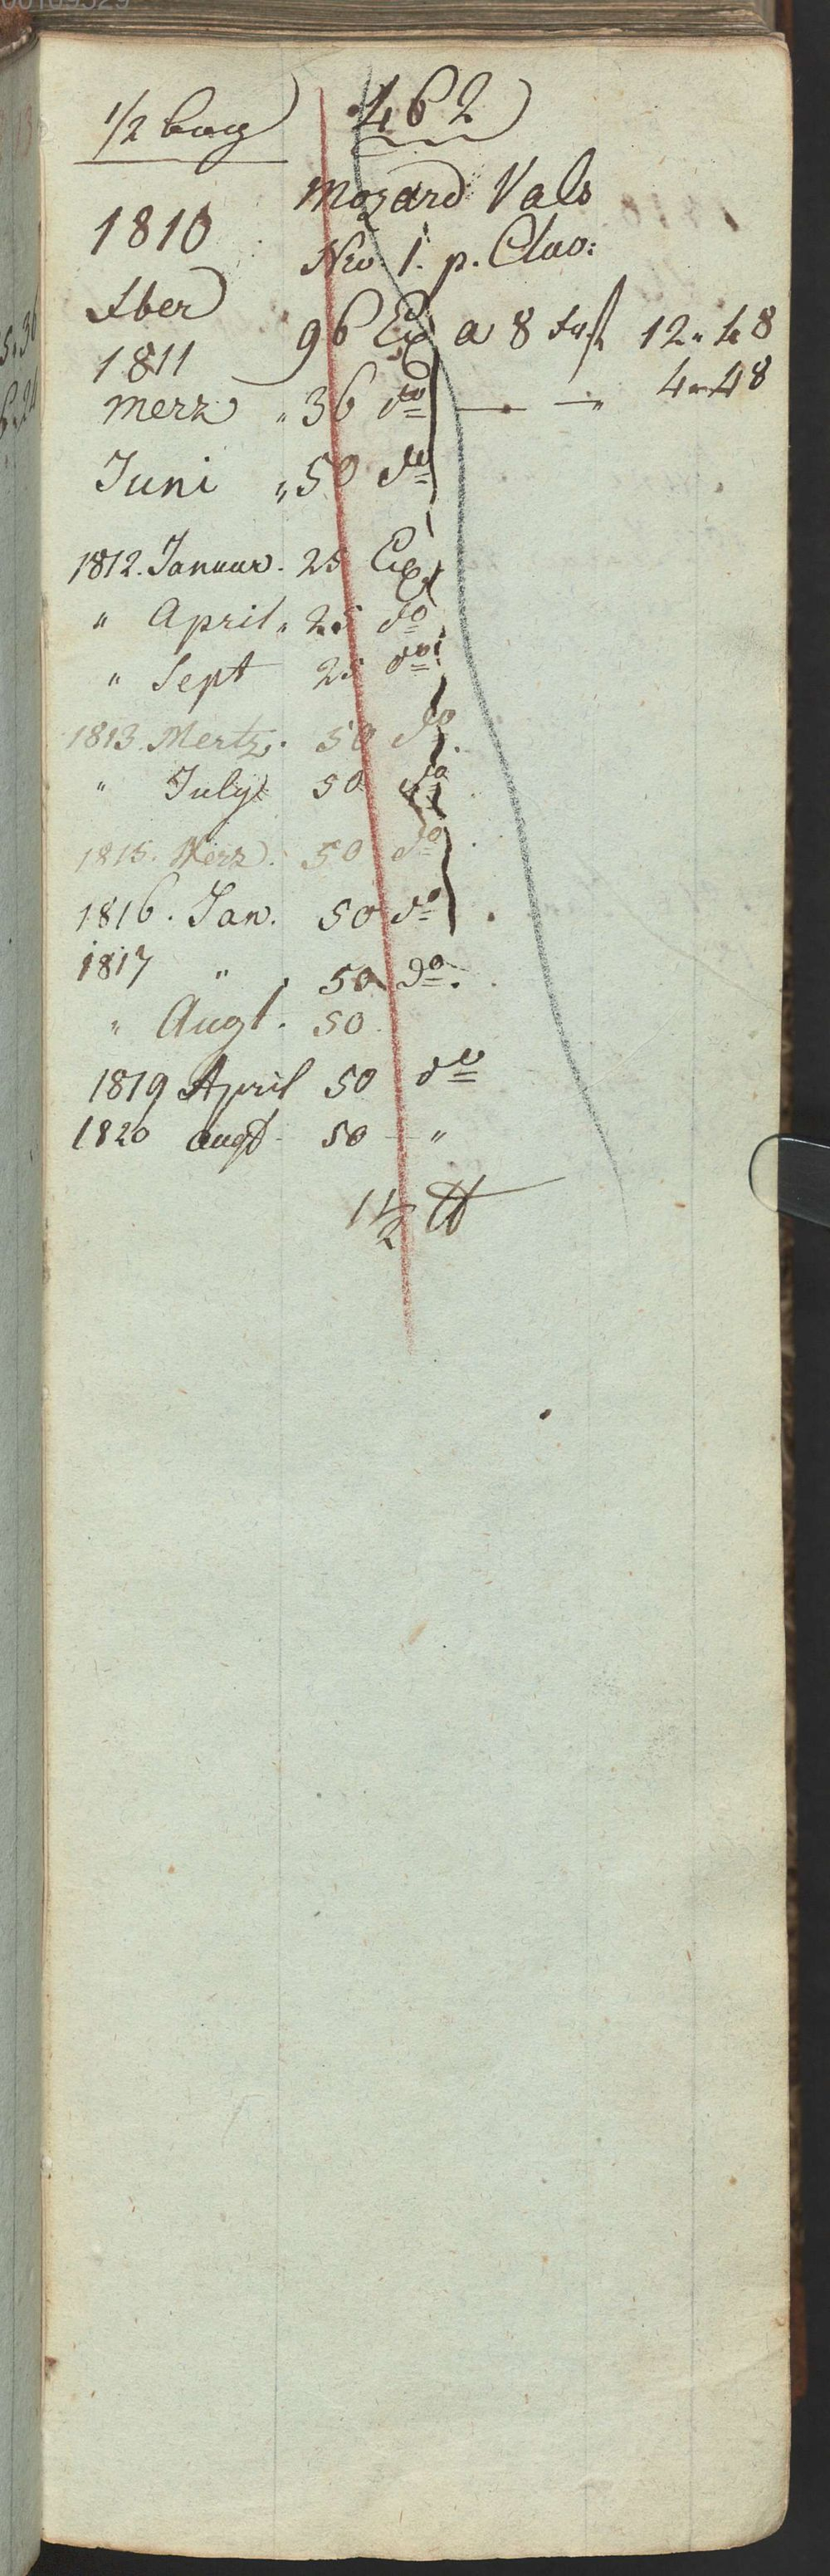 1/2 bog 462
Mozard Vals
1810 Nro. 1. p. Clav:
Xber 96 Ex a 8 12 " 48
1811
Merz " 36 do — — " 4 " 48
Juni " 50 do
1812. Januar. 25 Ex
" April " 25 do
" Sept 25 do
1813. Mertz. 50 do
" July 50 do
1815. Merz. 50 do
1816. Jan. 50 do
1817 " 50 do.
" Augt. 50
1819 April 50 do
1820 augt 50 "
1 1/2 ℔